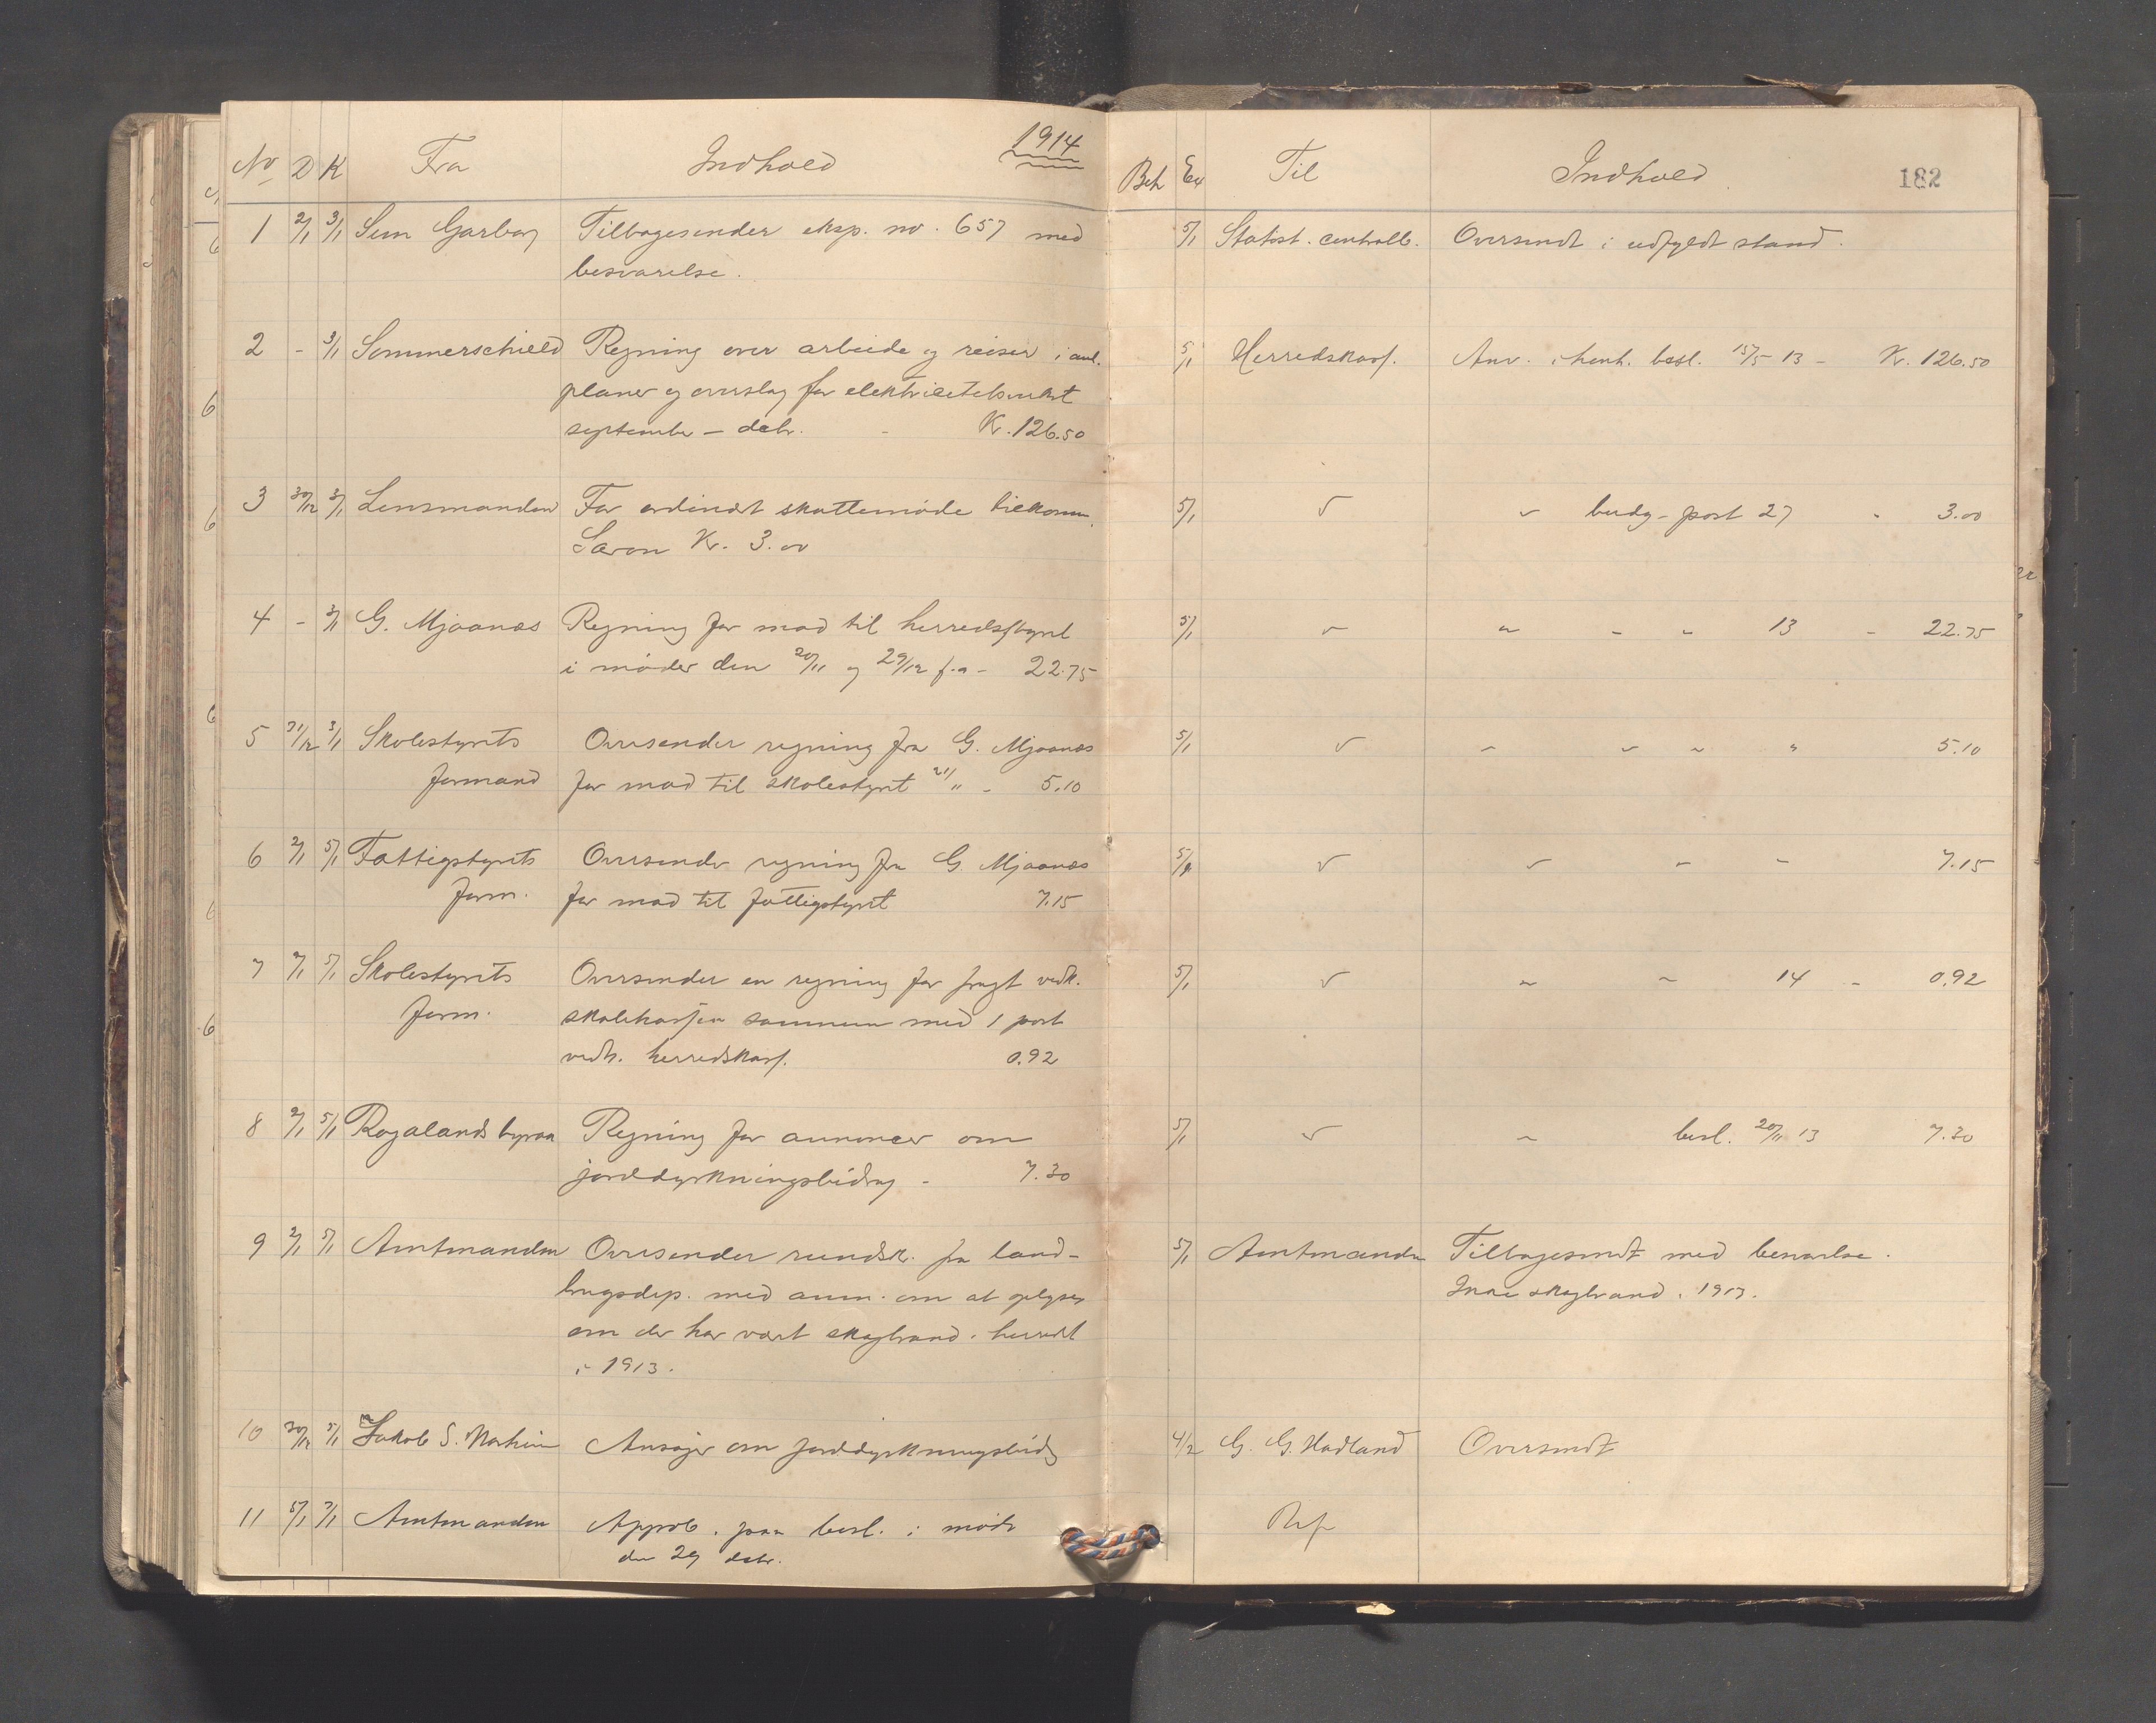 1914
No D K Fra Indhold
Beh Ex Til Indhold 182
1 2/1 3/1 Sem Garborg Tilbagesender eksp. no. 657 med
besvarelse.
5/1 Statist. centralb. Oversendt i udfyldt stand.
2 - 3/1 Sommerschield Regning over arbeide og reiser i anl.
planer og overslag for elektricitetsverket
september - debr. - Kr. 126.50
5/1 Herredskass. Anv. i henh. besl. 15/5 13 - Kr. 126.50
3 30/12 3/1 Lensmanden For ordinært skattemøde tilkomm.
Kr. 3.00
5/1 " " budg-post 27 - 3.00
4 - 3/1 G. Mjaanæs Regning for mad til herredsstyret
i møder den 20/11 og 29/12 f.a - 22.75
5/1 " " " " 13 - 22.75
5 31/12 3/1 Skolestyrets Oversender regning fra G. Mjaanæs
formand for mad til skolestyret 21/11 - 5.10
5/1 " " " " " 5.10
6 2/1 5/1 Fattigstyrets Oversender regning fra G Mjaanæs
form. for mad til fattigstyret 7.15
5/1 " " " " 7.15
7 2/1 5/1 Skolestyrets Oversender en regning for fragt vedk.
form. skolekassen sammen med 1 post
vedk. herredskass. 0.92
5/1 " " " 14 - 0.92
8 2/1 5/1 Rogalands byraa Regning for annoncer om
jorddyrkningsbidrag - 7.30
5/1 " " besl. 20/11 13 7.30
9 2/1 5/1 Amtmanden Oversender rundsk. fra land-
brugsdep. med anm. om at oplyses
om der har vært skogbrand i herredet
i 1913.
5/1 Amtmanden Tilbagesendt med besvarelse.
Ikke skogbrand i 1913.
10 30/12 5/1 Jakob S. Ansøger om jorddyrkningsbidrag
4/2 G. G. Hadland Oversendt
11 5/1 7/1 Amtmanden Approb. paa besl. i møde
den 29 debr.
Ref